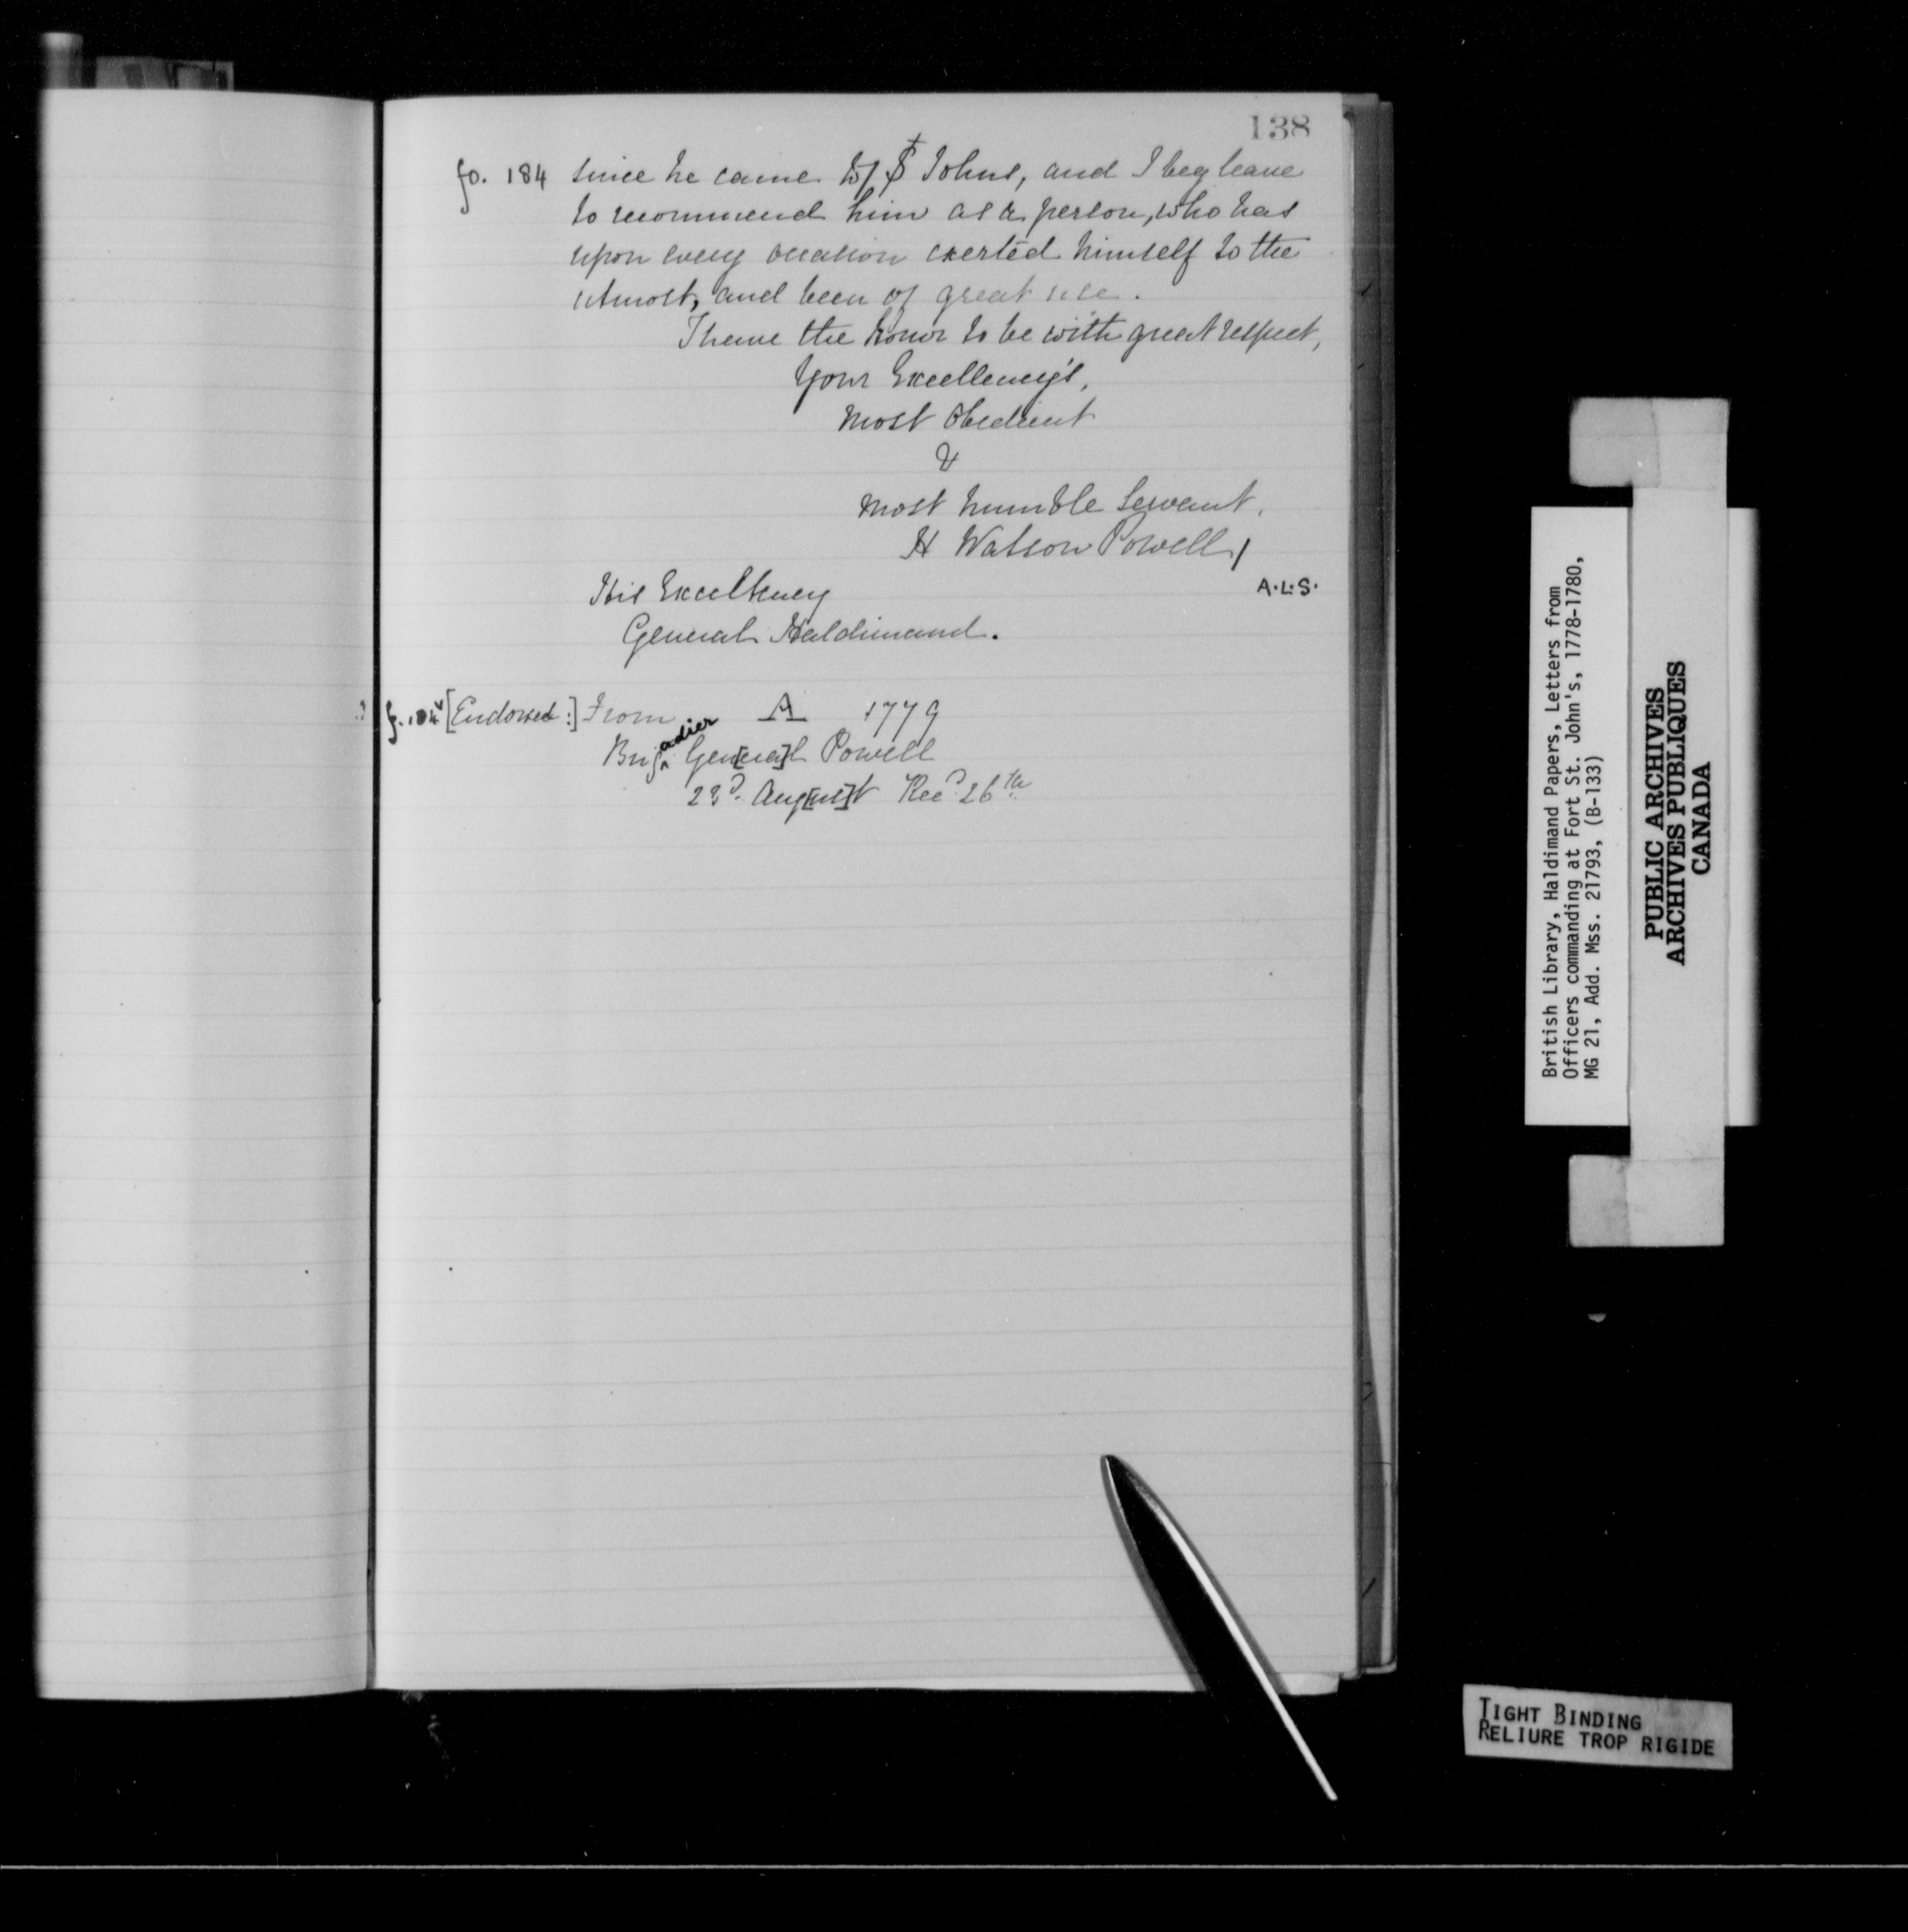 138
fo. 184 since he came to St Johns, and I beg leave
to recommend him as a person, who has
upon every occasion exerted himself to the
utmost, and been of great use.
I have the honor to be with great respect,
Your Excellency's,
Most Obedient
&
Most humble Servant,
H Watson Powell
A.L.S.
His Excellency
General Haldimand.
fo. 184v [Endorsed:] From A 1779
Brigadier Gen[era]l Powell
23d. Aug[us]t Recd. 26th
British Library, Haldimand Papers, Letters from
Officers commanding at Fort St. John's, 1778-1780,
MG 21, Add. Mss. 21793, (B-133)
PUBLIC ARCHIVES
ARCHIVES PUBLIQUES
CANADA
TIGHT BINDING
RELIURE TROP RIGIDE